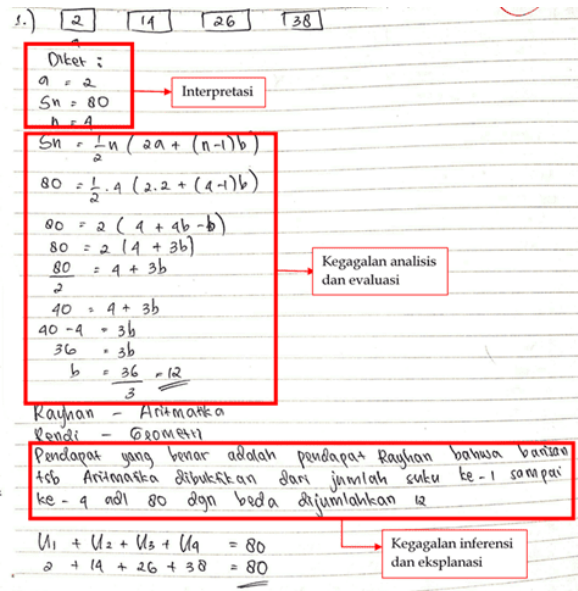 1.) 2 14 26 38
Diket :
a = 2
Sn = 80
n = 4
Interpretasi
Sn = 1/2 n ( 2a + (n-1)b )
80 = 1/2 . 4 ( 2.2 + (4-1)b )
80 = 2 ( 4 + 4b - b )
80 = 2 ( 4 + 3b )
80/2 = 4 + 3b
40 = 4 + 3b
40 - 4 = 3b
36 = 3b
b = 36/3 = 12
Kegagalan analisis
dan evaluasi
Rayhan - Aritmatika
Rendi - Geometri
Pendapat yang benar adalah pendapat Rayhan bahwa barisan
tsb Aritmatika dibuktikan dari jumlah suku ke-1 sampai
ke-4 adl 80 dgn beda dijumlahkan 12
U1 + U2 + U3 + U4 = 80
2 + 14 + 26 + 38 = 80
Kegagalan inferensi
dan eksplanasi